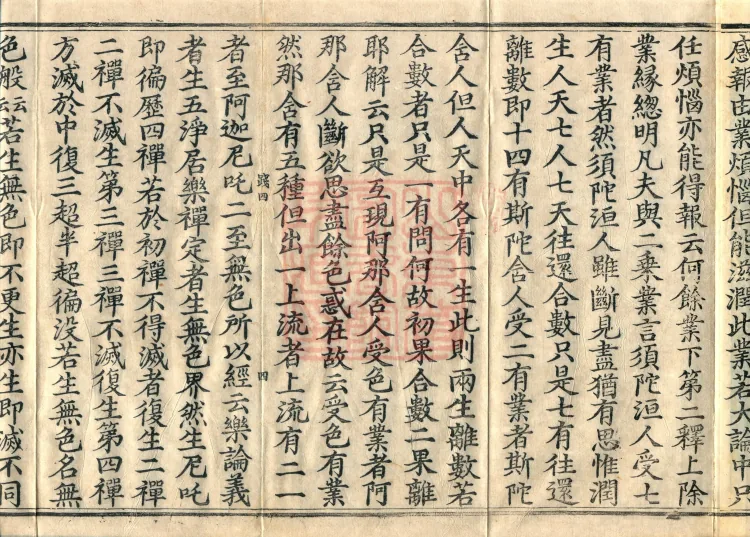 感報由業煩惱但能滋潤此業若大論中只
任煩惱亦能得報云何餘業下第二釋上除
業緣總明凡夫與二乘業言須陀洹人受七
有業者然須陀洹人雖斷見盡猶有思惟潤
生人天七人七天往還合數只是七有往還
離數即十四有斯陀含人受二有業者斯陀
含人但人天中各有一生此則兩生離數若
合數者只是一有問何故初果合數二果離
耶解云只是互現阿那含人受色有業者阿
那含人斷欲思盡餘色惑在故云受色有業
然那含有五種但出一上流者上流有二一
四
者至阿迦尼吒二至無色所以經云樂論義
者生五淨居樂禪定者生無色界然生尼吒
即徧歷四禪若於初禪不得滅者復生二禪
二禪不滅生第三禪三禪不滅復生第四禪
方滅於中復三超半超徧没若生無色名無
色般云云若生無色即不更生亦生即滅不同